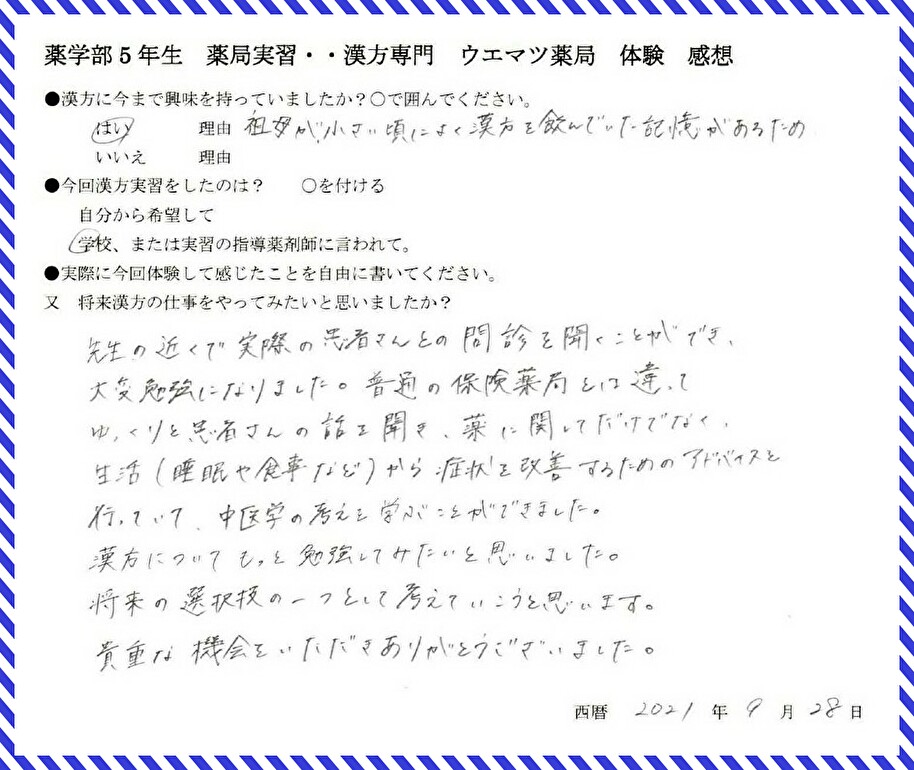 薬学部5年生 薬局実習・・漢方専門 ウエマツ薬局 体験 感想
●漢方に今まで興味を持っていましたか？○で囲んでください。
はい 理由 祖母が、小さい頃によく漢方を飲んでいた記憶があるため
いいえ 理由
●今回漢方実習をしたのは？ ○を付ける
自分から希望して
学校、または実習の指導薬剤師に言われて。
●実際に今回体験して感じたことを自由に書いてください。
又 将来漢方の仕事をやってみたいと思いましたか？
先生の近くで実際の患者さんとの問診を聞くことができ、
大変勉強になりました。普通の保険薬局とは違って
ゆっくりと患者さんの話を聞き、薬に関してだけでなく、
生活(睡眠や食事など)から症状を改善するためのアドバイスを
行っていて、中医学の考えを学ぶことができました。
漢方についてもっと勉強してみたいと思いました。
将来の選択技の一つとして考えていこうと思います。
貴重な機会をいただきありがとうございました。
西暦 2021 年 9 月 28 日